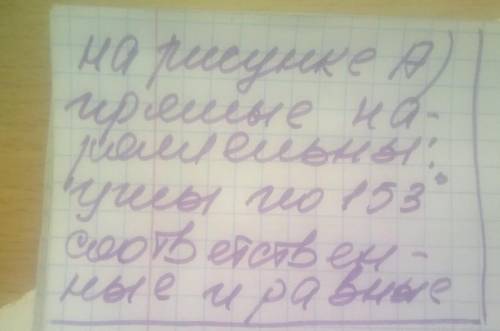 на рисунке А)
прямые па-
раллельны:
углы по 153°
соответствен-
ные и равные